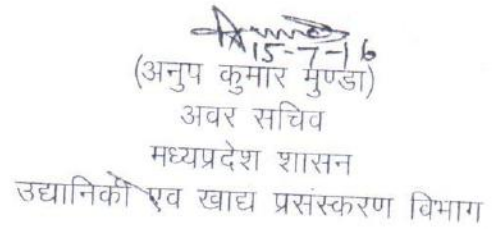 15-7-16
(अनुप कुमार मुण्डा)
अवर सचिव
मध्यप्रदेश शासन
उद्यानिकी एव खाद्य प्रसंस्करण विभाग